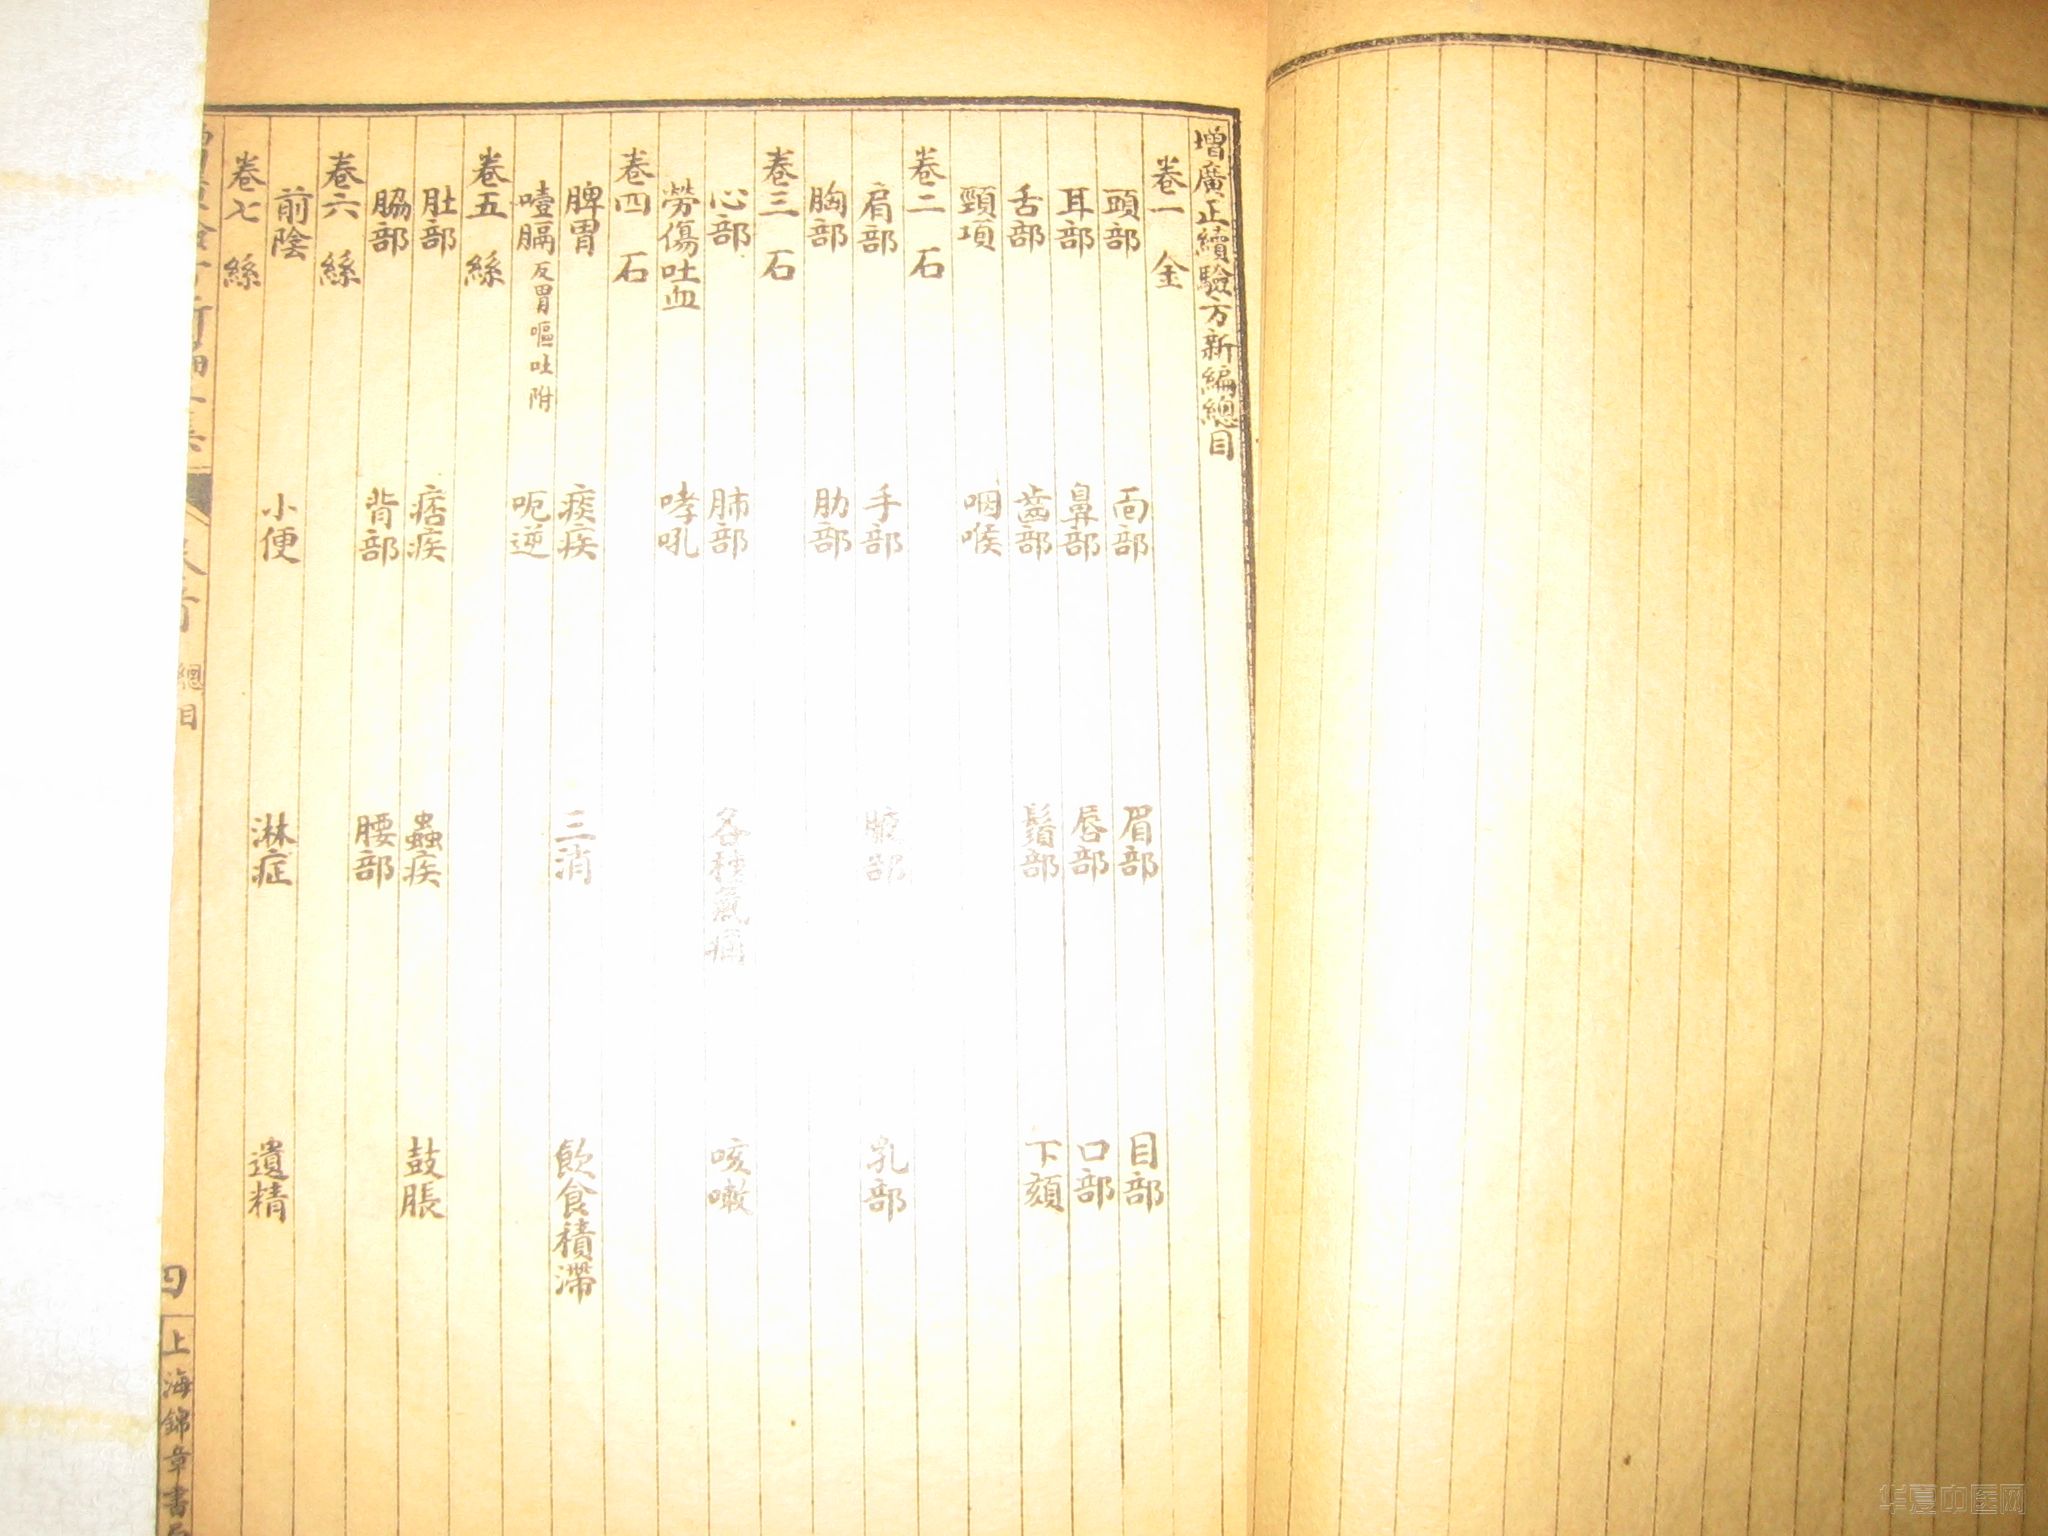 增廣正續驗方新編總目
卷一 金
頭部 面部 眉部 目部
耳部 鼻部 唇部 口部
舌部 齒部 鬚部 下頦
頸項 咽喉
卷二 石
肩部 手部 腋部 乳部
胸部 肋部
卷三 石
心部 肺部 各種氣痛 咳嗽
勞傷吐血 哮吼
卷四 石
脾胃 痰疾 三消 飲食積滯
噎膈 反胃嘔吐附 呃逆
卷五 絲
肚部 痞疾 蟲疾 鼓脹
脇部 背部 腰部
卷六 絲
前陰 小便 淋症 遺精
卷七 絲
總目
四
上海錦章書局
华夏中医网